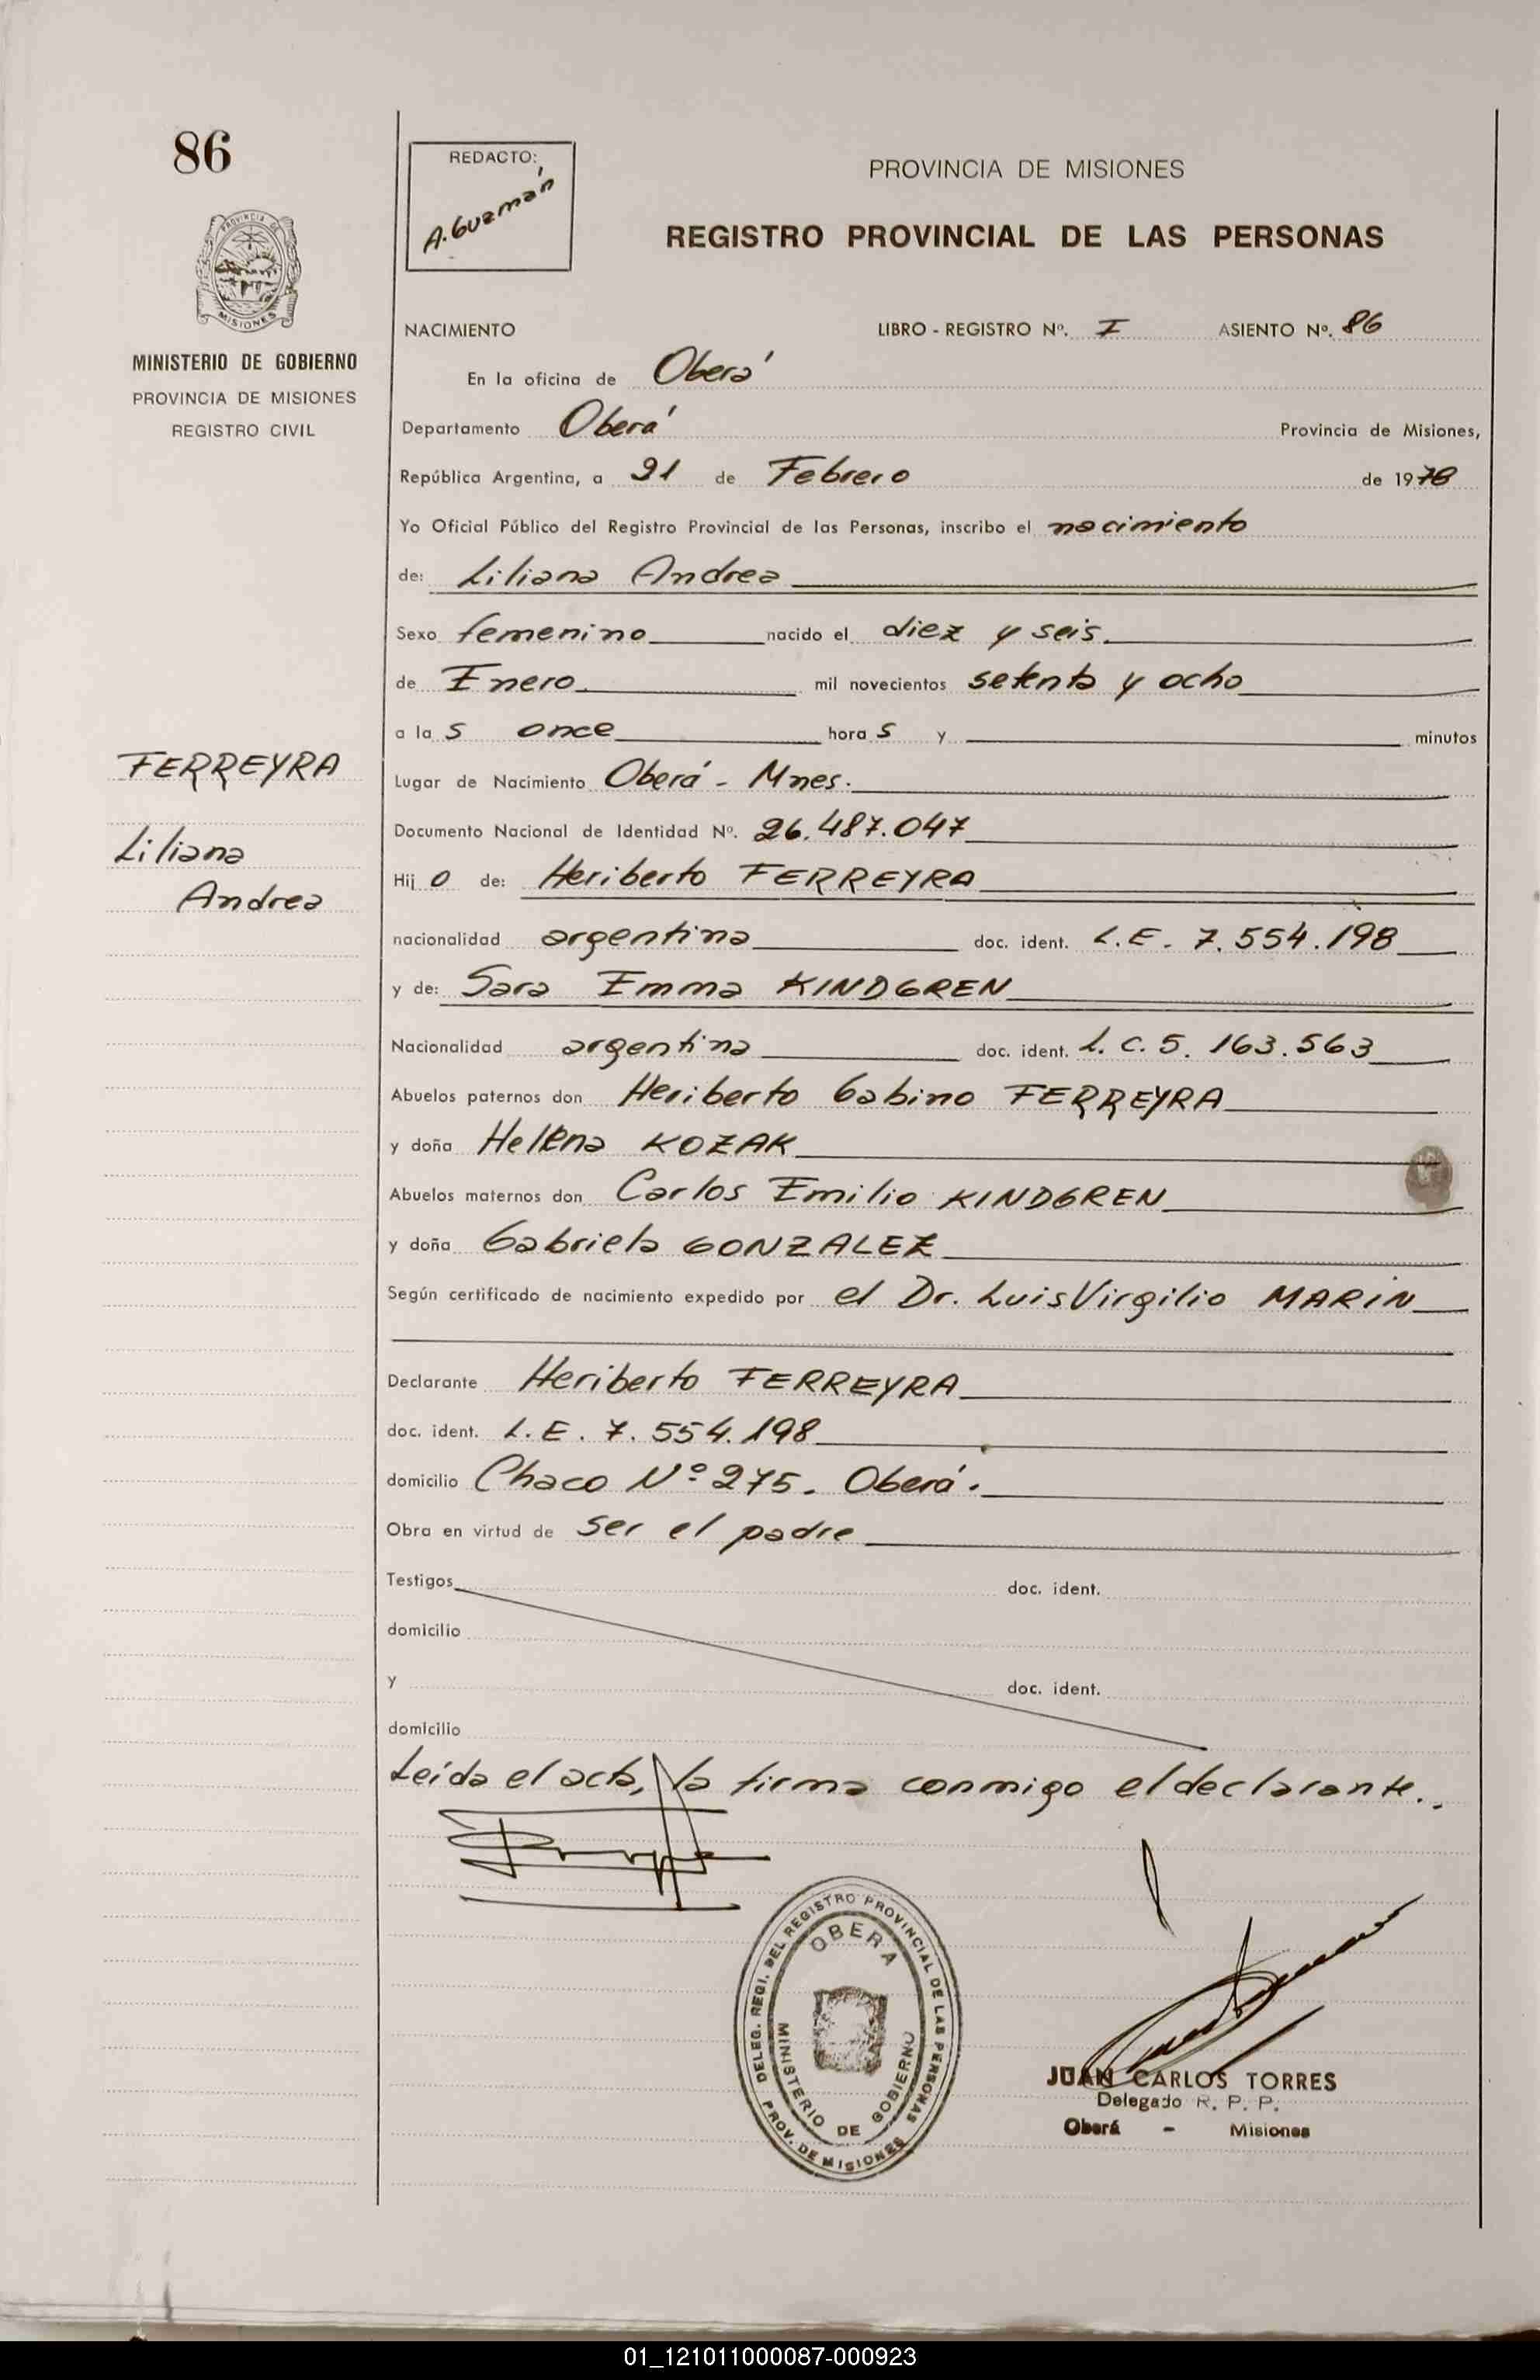 86
MINISTERIO DE GOBIERNO
PROVINCIA DE MISIONES
REGISTRO CIVIL
FERREYRA
Liliana
Andrea
REDACTO:
A. Guzmán
PROVINCIA DE MISIONES
REGISTRO PROVINCIAL DE LAS PERSONAS
NACIMIENTO LIBRO - REGISTRO Nº. I ASIENTO Nº. 86
En la oficina de Oberá
Departamento Oberá Provincia de Misiones,
República Argentina, a 21 de Febrero de 1978
Yo Oficial Público del Registro Provincial de las Personas, inscribo el nacimiento
de: Liliana Andrea
Sexo femenino nacido el diez y seis.
de Enero. mil novecientos setenta y ocho
a la s once hora s y minutos
Lugar de Nacimiento Oberá - Mnes.
Documento Nacional de Identidad Nº. 26.487.047
Hij o de: Heriberto FERREYRA
nacionalidad argentina doc. ident. L.E. 7.554.198
y de: Sara Emma KINDGREN
Nacionalidad argentina doc. ident. L.C. 5.163.563
Abuelos paternos don Heriberto Gabino FERREYRA
y doña Helena KOZAK
Abuelos maternos don Carlos Emilio KINDGREN
y doña Gabriela GONZALEZ
Según certificado de nacimiento expedido por el Dr. Luis Virgilio MARIN
Declarante Heriberto FERREYRA
doc. ident. L.E. 7.554.198
domicilio Chaco Nº 275. Oberá.
Obra en virtud de ser el padre
Testigos doc. ident.
domicilio
y doc. ident.
domicilio
Leída el acta, la firma conmigo el declarante..
DELEG. REGI. DEL REGISTRO PROVINCIAL DE LAS PERSONAS
OBERA
MINISTERIO DE GOBIERNO
PROV. DE MISIONES
JUAN CARLOS TORRES
Delegado R. P. P.
Oberá - Misiones
01_121011000087-000923